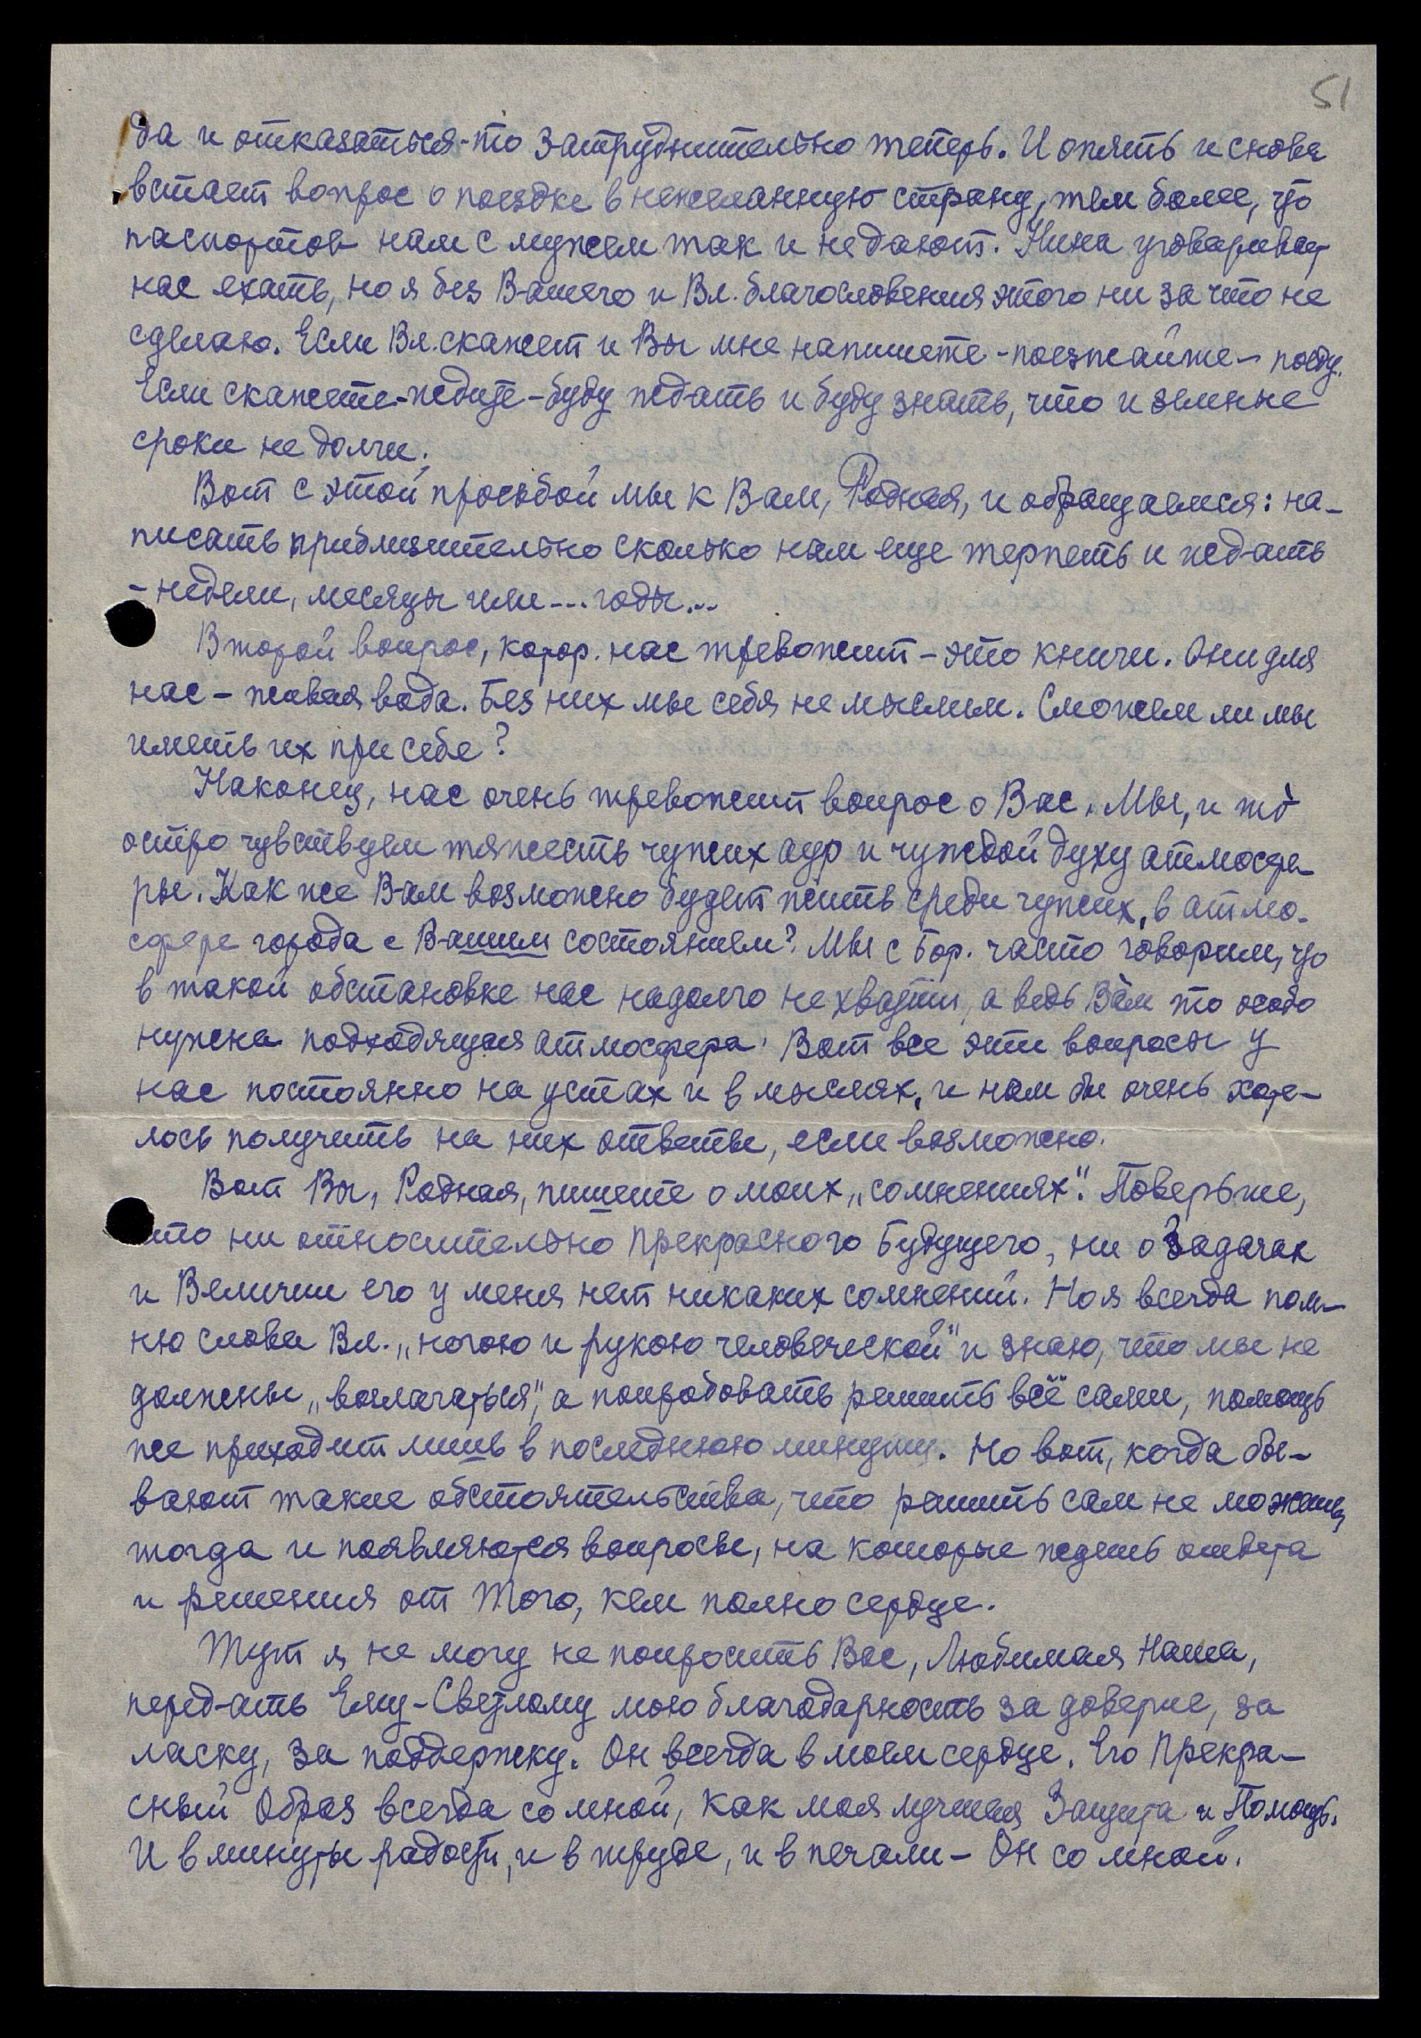 51
да и отказаться-то затруднительно теперь. И опять и снова
встает вопрос о поездке в нежеланную страну, тем более, что
паспортов нам с мужем так и не дают. Нина уговаривает
нас ехать, но я без Вашего и Вл. благословения этого ни за что не
сделаю. Если Вл. скажет и Вы мне напишете - поезжайте - поеду.
Если скажете - ждите - буду ждать и буду знать, что и земные
сроки не долги.
Вот с этой просьбой мы к Вам, Родная, и обращаемся: на-
писать приблизительно сколько нам еще терпеть и ждать
- недели, месяцы или... годы...
Второй вопрос, котор. нас тревожит - это книги. Они для
нас - живая вода. Без них мы себя не мыслим. Сможем ли мы
иметь их при себе?
Наконец, нас очень тревожит вопрос о Вас. Мы, и то
остро чувствуем тяжесть чужих аур и чуждой духу атмосфе-
ры. Как же Вам возможно будет жить среди чужих, в атмо-
сфере города с Вашим состоянием? Мы с Бор. часто говорим, что
в такой обстановке нас надолго не хватит, а ведь Вам то особо
нужна подходящая атмосфера. Вот все эти вопросы у
нас постоянно на устах и в мыслях, и нам бы очень хоте-
лось получить на них ответы, если возможно.
Вот Вы, Родная, пишете о моих „сомнениях". Поверьте,
что ни относительно Прекрасного Будущего, ни о Задачах
и Величии его у меня нет никаких сомнений. Но я всегда пом-
ню слова Вл. „ногою и рукою человеческой" и знаю, что мы не
должны „волагаться", а попробовать решить всё сами, помощь
же приходит лишь в последнюю минуту. Но вот, когда бы-
вают такие обстоятельства, что решить сам не можешь,
тогда и появляются вопросы, на которые ждешь ответа
и решения от Того, кем полно сердце.
Тут я не могу не попросить Вас, Любимая Наша,
передать Ему-Светлому мою благодарность за доверие, за
ласку, за поддержку. Он всегда в моем сердце. Его Прекра-
сный Образ всегда со мной, как моя лучшая Защита и Помощь.
И в минуты радости, и в труде, и в печали - Он со мной.